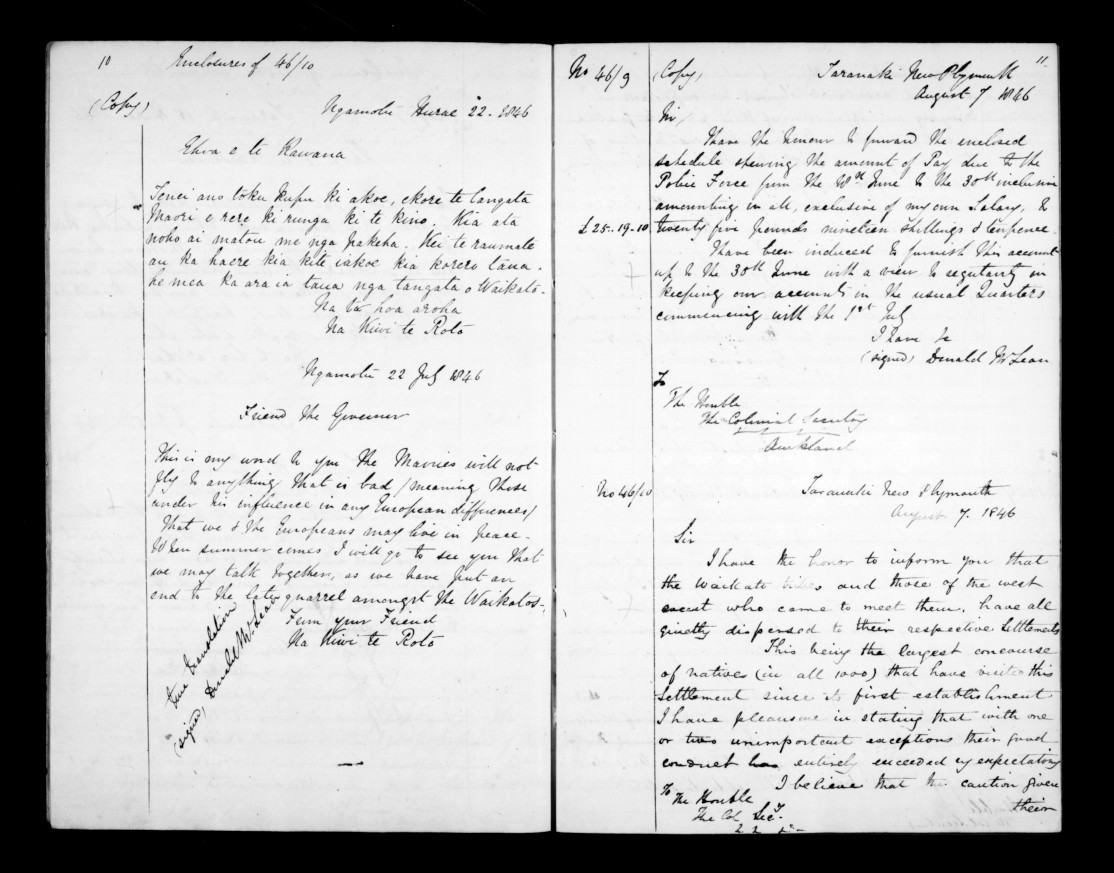 10 Enclosures of 46/10
(Copy)
Ngamotu Hurae 22. 1846
Ehoa e te Kawana
Tenei ano toku kupu ki akoe, ekore te tangata
Maori e rere ki runga ki te kino. Kia ata
noho ai matou me nga pakeha. Kei te raumate
au ka haere kia kite iakoe kia korero taua.
he mea ka ara ia taua nga tangata o Waikato.
Na to hoa aroha
Na Kiwi te Roto
Ngamotu 22 July 1846
Friend the Governor
This is my word to you the Maories will not
fly to anything that is bad /meaning those
under his influence in any European differences/
that we & the Europeans may live in peace.
When summer comes I will go to see you that
we may talk together, as we have put an
end to the late quarrel amongst the Waikatos.
From your Friend
Na Kiwi te Roto
true translation
(signed) Donald McLean
11
No 46/9 (Copy) Taranaki New Plymouth
August 7 1846
Sir,
I have the honour to forward the enclosed
schedule shewing the amount of Pay due to the
Police Force from the 18th June to the 30th inclusive
amounting in all, exclusive of my own Salary, to
£25.19.10 twenty five pounds nineteen shillings & tenpence.
I have been induced to furnish this account
up to the 30th June with a view to regularity in
keeping our accounts in the usual Quarters
commencing with the 1st July
I have &c
(signed) Donald McLean
To
The Honble
The Colonial Secretary
Auckland
No 46/10 Taranaki New Plymouth
August 7. 1846
Sir
I have the honor to inform you that
the Waikato tribes and those of the west
coast who came to meet them, have all
quietly dispersed to their respective Settlements
This being the largest concourse
of natives (in all 1000) that have visited this
Settlement since its first establishment
I have pleasure in stating that with one
or two unimportant exceptions their good
conduct has entirely exceeded my expectations
I believe that the caution given
To The Honble
their
The Col Secy.